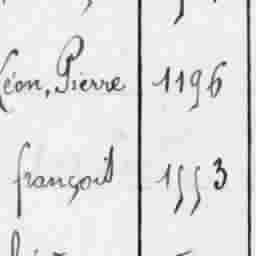 Léon, Pierre 1196
françois 1553